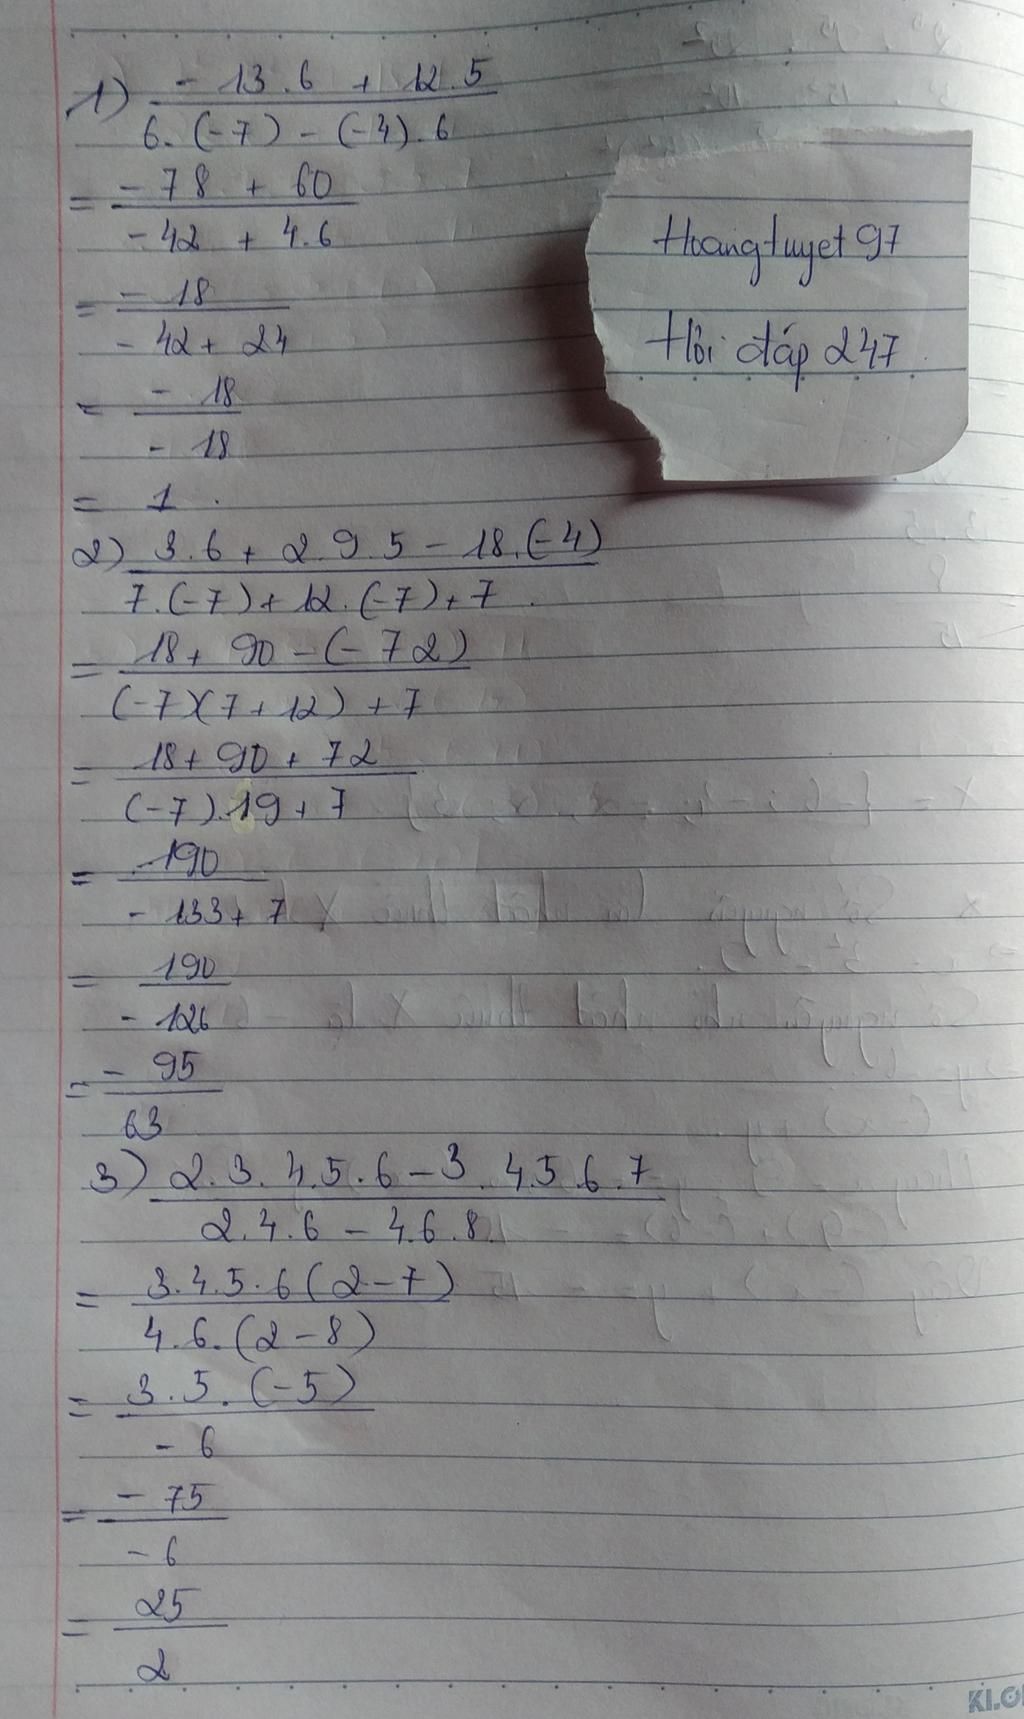 1) - 13.6 + 12.5
6. (-7) - (-4).6
= - 78 + 60
- 42 + 4.6
= - 18
- 42 + 24
= - 18
- 18
= 1.
2) 3.6 + 2.9.5 - 18.(-4)
7.(-7) + 12.(-7) + 7
= 18 + 90 - (-72)
(-7)(7 + 12) + 7
= 18 + 90 + 72
(-7).19 + 7
= 190
- 133 + 7
= 190
- 126
= - 95
63
3) 2.3.4.5.6 - 3.4.5.6.7
2.4.6 - 4.6.8
= 3.4.5.6(2-7)
4.6.(2-8)
= 3.5.(-5)
- 6
= - 75
- 6
= 25
2
Hoangtuyet 97
Hỏi đáp 247